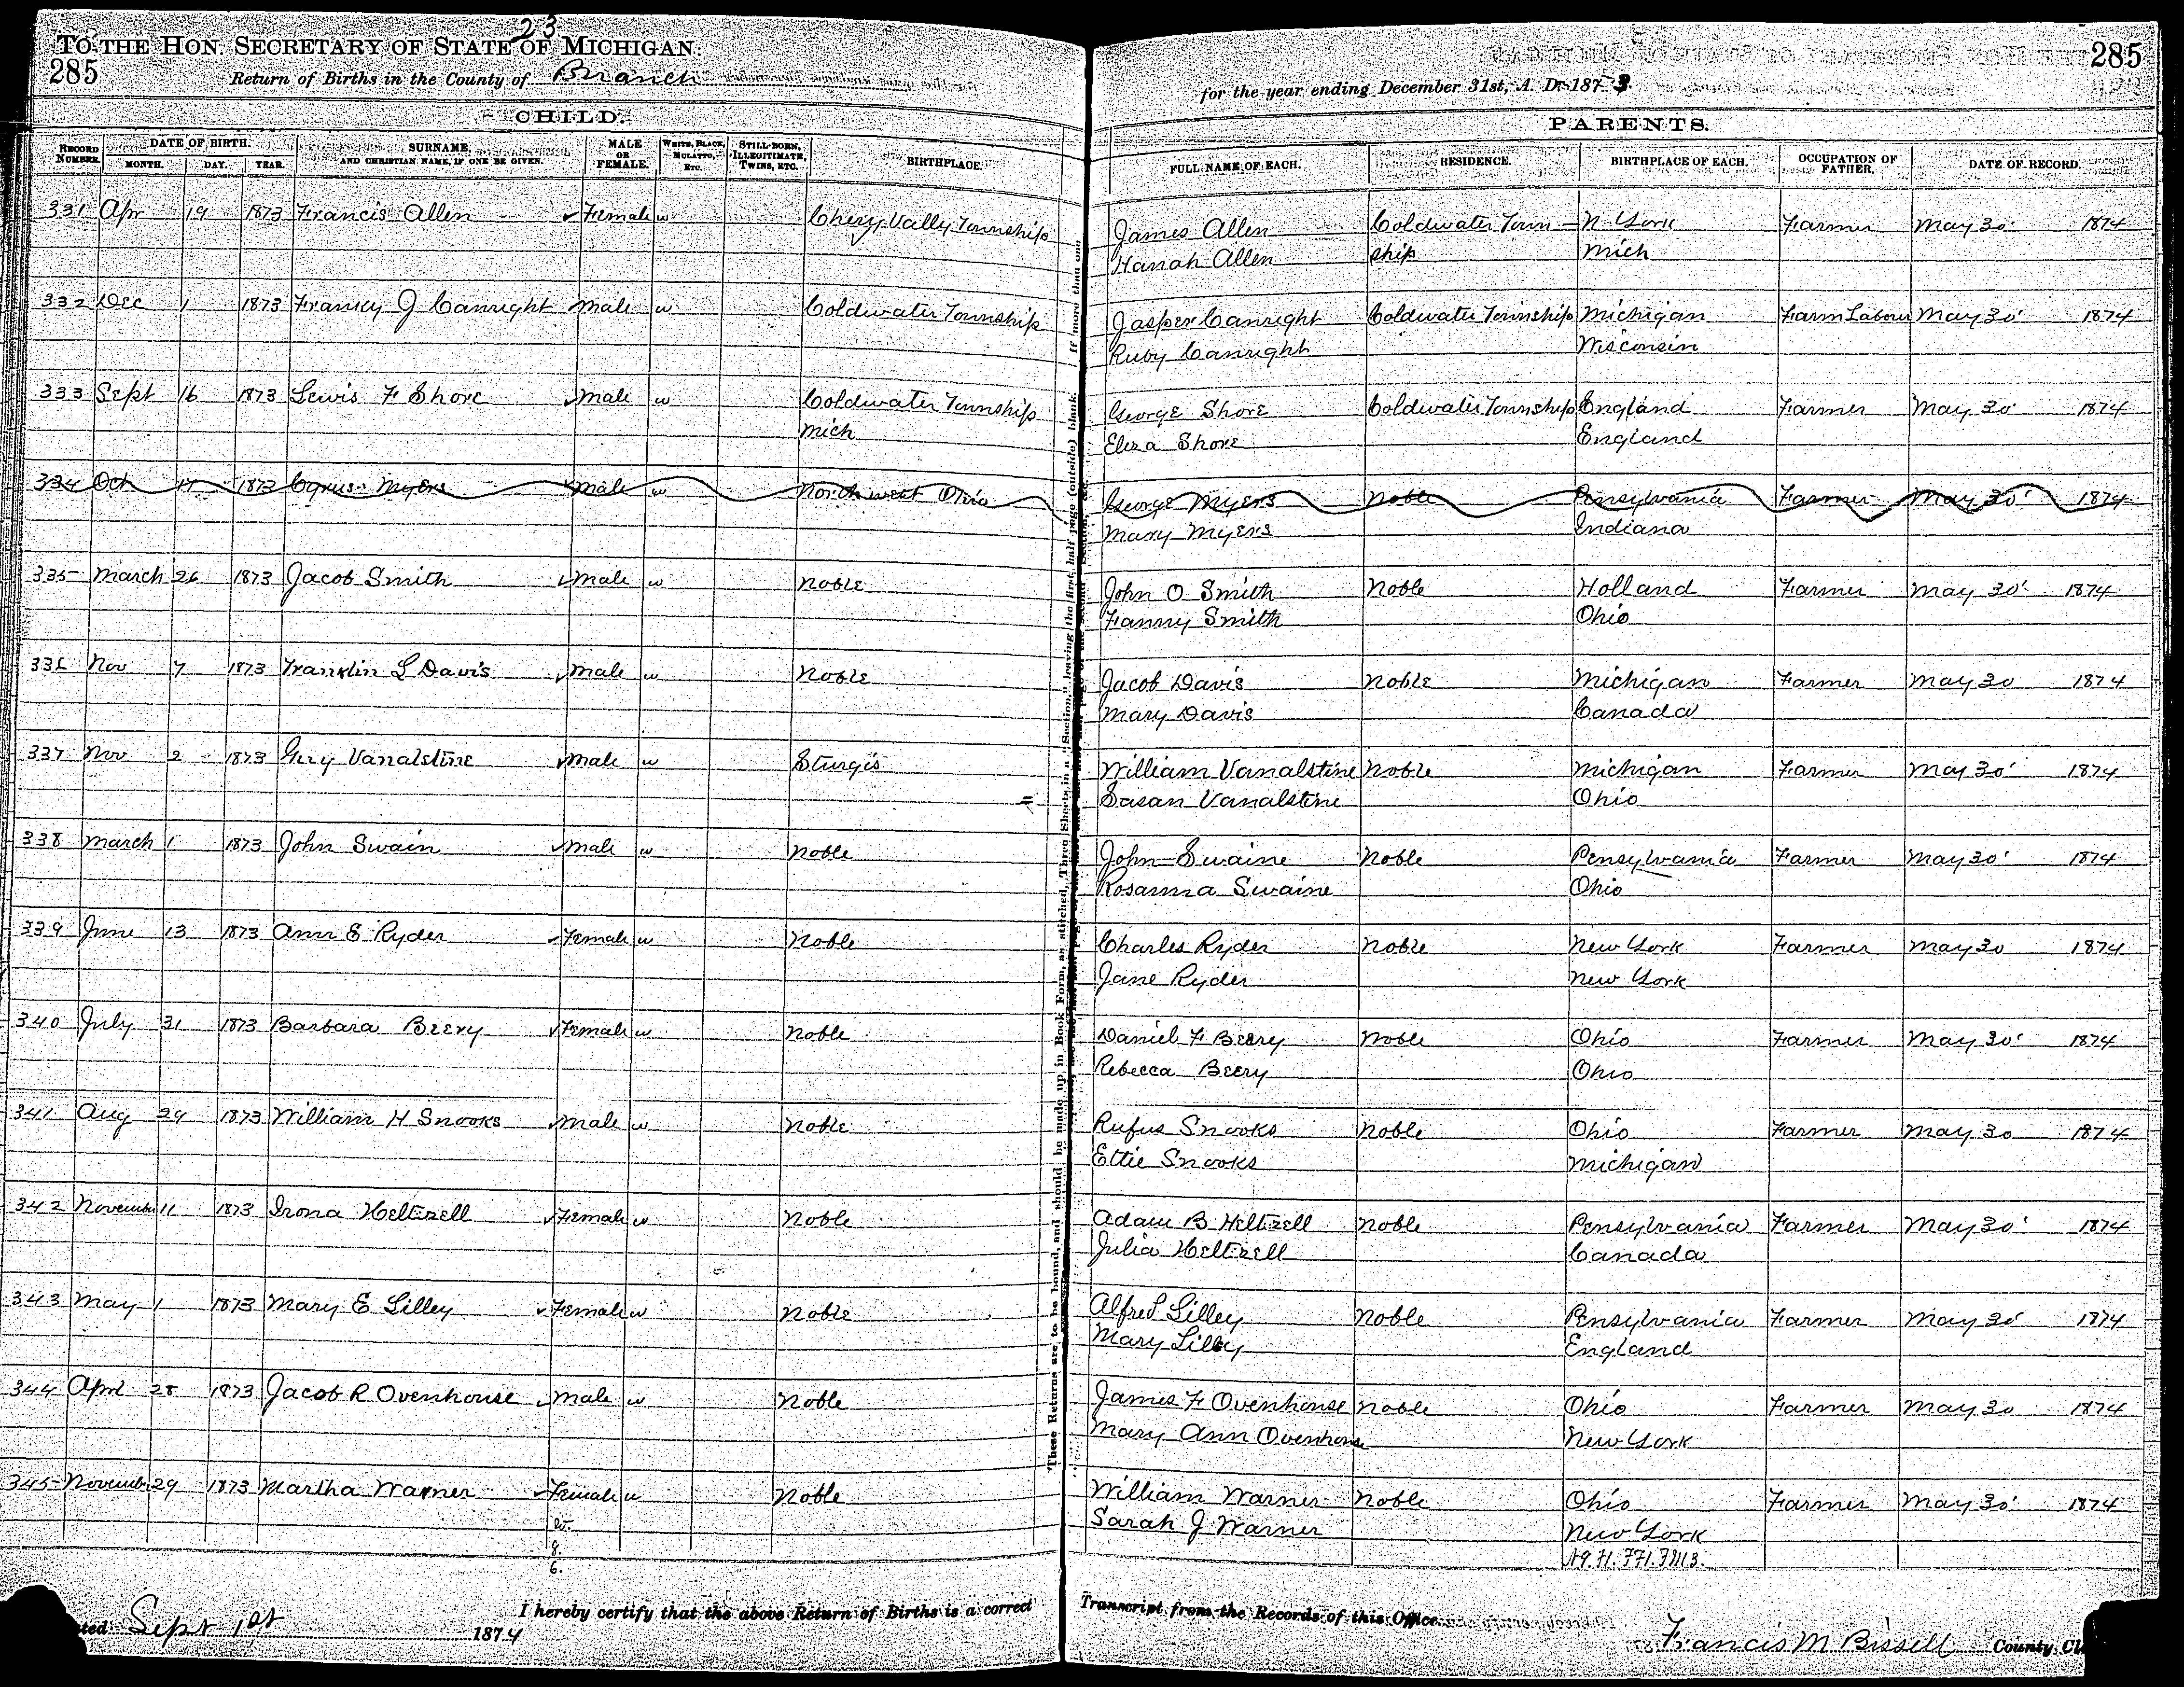 23
TO THE HON. SECRETARY OF STATE OF MICHIGAN.
285
Return of Births in the County of Branch
for the year ending December 31st, A. D. 1873.
285
CHILD.
PARENTS.
RECORD NUMBER. DATE OF BIRTH. MONTH. DAY. YEAR. SURNAME, AND CHRISTIAN NAME, IF ONE BE GIVEN. MALE OR FEMALE. WHITE, BLACK, MULATTO, ETC. STILL-BORN, ILLEGITIMATE, TWINS, ETC. BIRTHPLACE. FULL NAME OF EACH. RESIDENCE. BIRTHPLACE OF EACH. OCCUPATION OF FATHER. DATE OF RECORD.
331 Apr 19 1873 Francis Allen Female w Chery Vally Township James Allen Coldwater Town- N. York Farmer May 30 1874
Hanah Allen ship Mich
332 Dec 1 1873 Franky J Canright Male w Coldwater Township Jasper Canright Coldwater Township Michigan Farm Labour May 30 1874
Ruby Canright Wisconsin
333 Sept 16 1873 Lewis F Shore Male w Coldwater Township George Shore Coldwater Township England Farmer May 30 1874
Mich Eliza Shore England
334 Oct 17 1873 Cyrus Myers Male w North west Ohio George Myers Noble Pensylvania Farmer May 30 1874
Mary Myers Indiana
335 March 26 1873 Jacob Smith Male w Noble John O Smith Noble Holland Farmer May 30 1874
Fanny Smith Ohio
336 Nov 7 1873 Franklin L Davis Male w Noble Jacob Davis Noble Michigan Farmer May 30 1874
Mary Davis Canada
337 Nov 2 1873 Vanalstine Male w Sturgis William Vanalstine Noble Michigan Farmer May 30 1874
Sasan Vanalstine Ohio
338 March 1 1873 John Swain Male w Noble John Swaine Noble Pensylvania Farmer May 30 1874
Rosanna Swaine Ohio
339 June 13 1873 Ann E Ryder Female w Noble Charles Ryder Noble New York Farmer May 30 1874
Jane Ryder New York
340 July 31 1873 Barbara Beery Female w Noble Daniel F Beery Noble Ohio Farmer May 30 1874
Rebecca Beery Ohio
341 Aug 29 1873 William H Snooks Male w Noble Rufus Snooks Noble Ohio Farmer May 30 1874
Ettie Snooks Michigan
342 November 11 1873 Irona Heltzell Female w Noble Adam B Heltzell Noble Pensylvania Farmer May 30 1874
Julia Heltzell Canada
343 May 1 1873 Mary E Lilley Female w Noble Alfred Lilley Noble Pensylvania Farmer May 30 1874
Mary Lilley England
344 Aprl 28 1873 Jacob R Ovenhouse Male w Noble James F Ovenhouse Noble Ohio Farmer May 30 1874
Mary Ann Ovenhouse New York
345 November 29 1873 Martha Warner Female w Noble William Warner Noble Ohio Farmer May 30 1874
Sarah J Warner New York
w.
8.
6.
I hereby certify that the above Return of Births is a correct Transcript from the Records of this Office.
Sept 1st 1874
Francis M Bissell County Cl